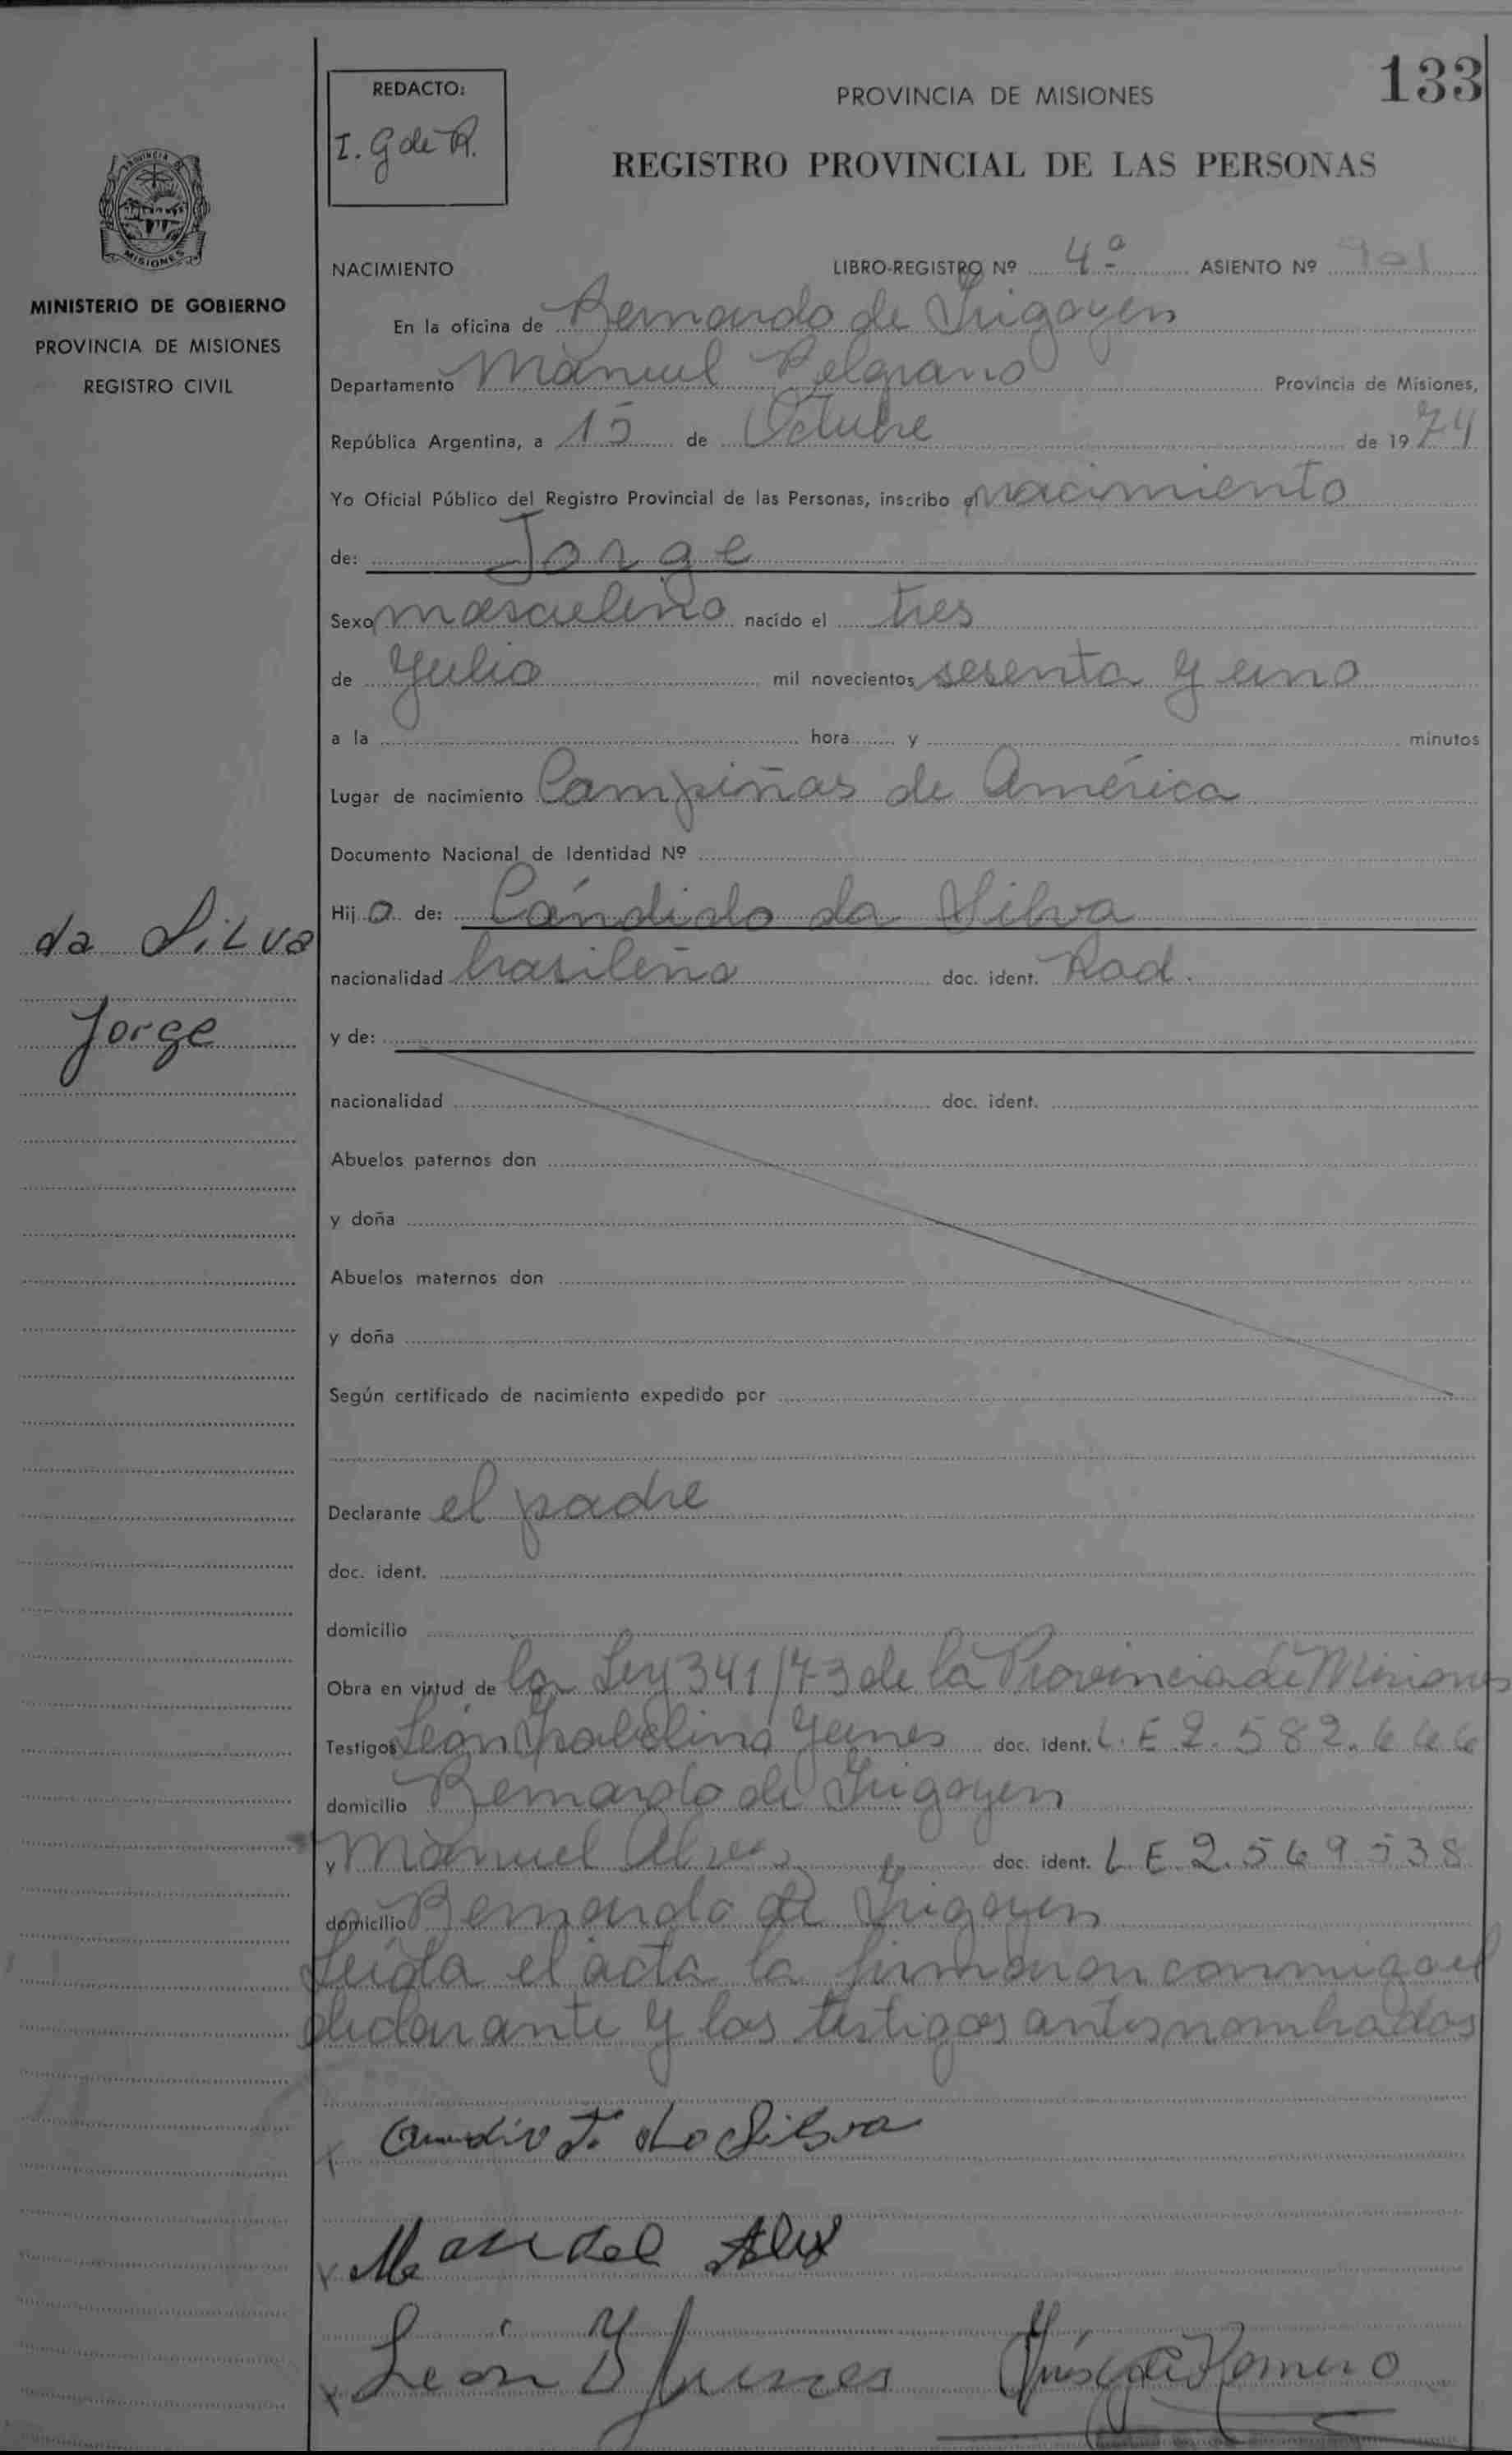 133
REDACTO:
I. G de R.
PROVINCIA DE MISIONES
REGISTRO PROVINCIAL DE LAS PERSONAS
PROVINCIA DE
MISIONES
MINISTERIO DE GOBIERNO
PROVINCIA DE MISIONES
REGISTRO CIVIL
NACIMIENTO LIBRO-REGISTRO Nº 4º ASIENTO Nº 901
En la oficina de Bernardo de Irigoyen
Departamento Manuel Belgrano Provincia de Misiones,
República Argentina, a 15 de Octubre de 1974
Yo Oficial Público del Registro Provincial de las Personas, inscribo el nacimiento
de: Jorge
Sexo masculino nacido el tres
de Julio mil novecientos sesenta y uno
a la hora y minutos
Lugar de nacimiento Campiñas de América
Documento Nacional de Identidad Nº
Hijo de: Cándido da Silva
da Silva
nacionalidad brasileña doc. ident. Rad.
Jorge
y de:
nacionalidad doc. ident.
Abuelos paternos don
y doña
Abuelos maternos don
y doña
Según certificado de nacimiento expedido por
Declarante el padre
doc. ident.
domicilio
Obra en virtud de la Ley 341/73 de la Provincia de Misiones
Testigos León Ysabelino Yunes doc. ident. L.E 2.582.666
domicilio Bernardo de Irigoyen
y Manuel Alves doc. ident. L E 2.569538
domicilio Bernardo de Irigoyen
Leída el acta la firmaron conmigo el
declarante y los testigos antes nombrados
x da Silva
x Manuel
x León Y Yunes Romero